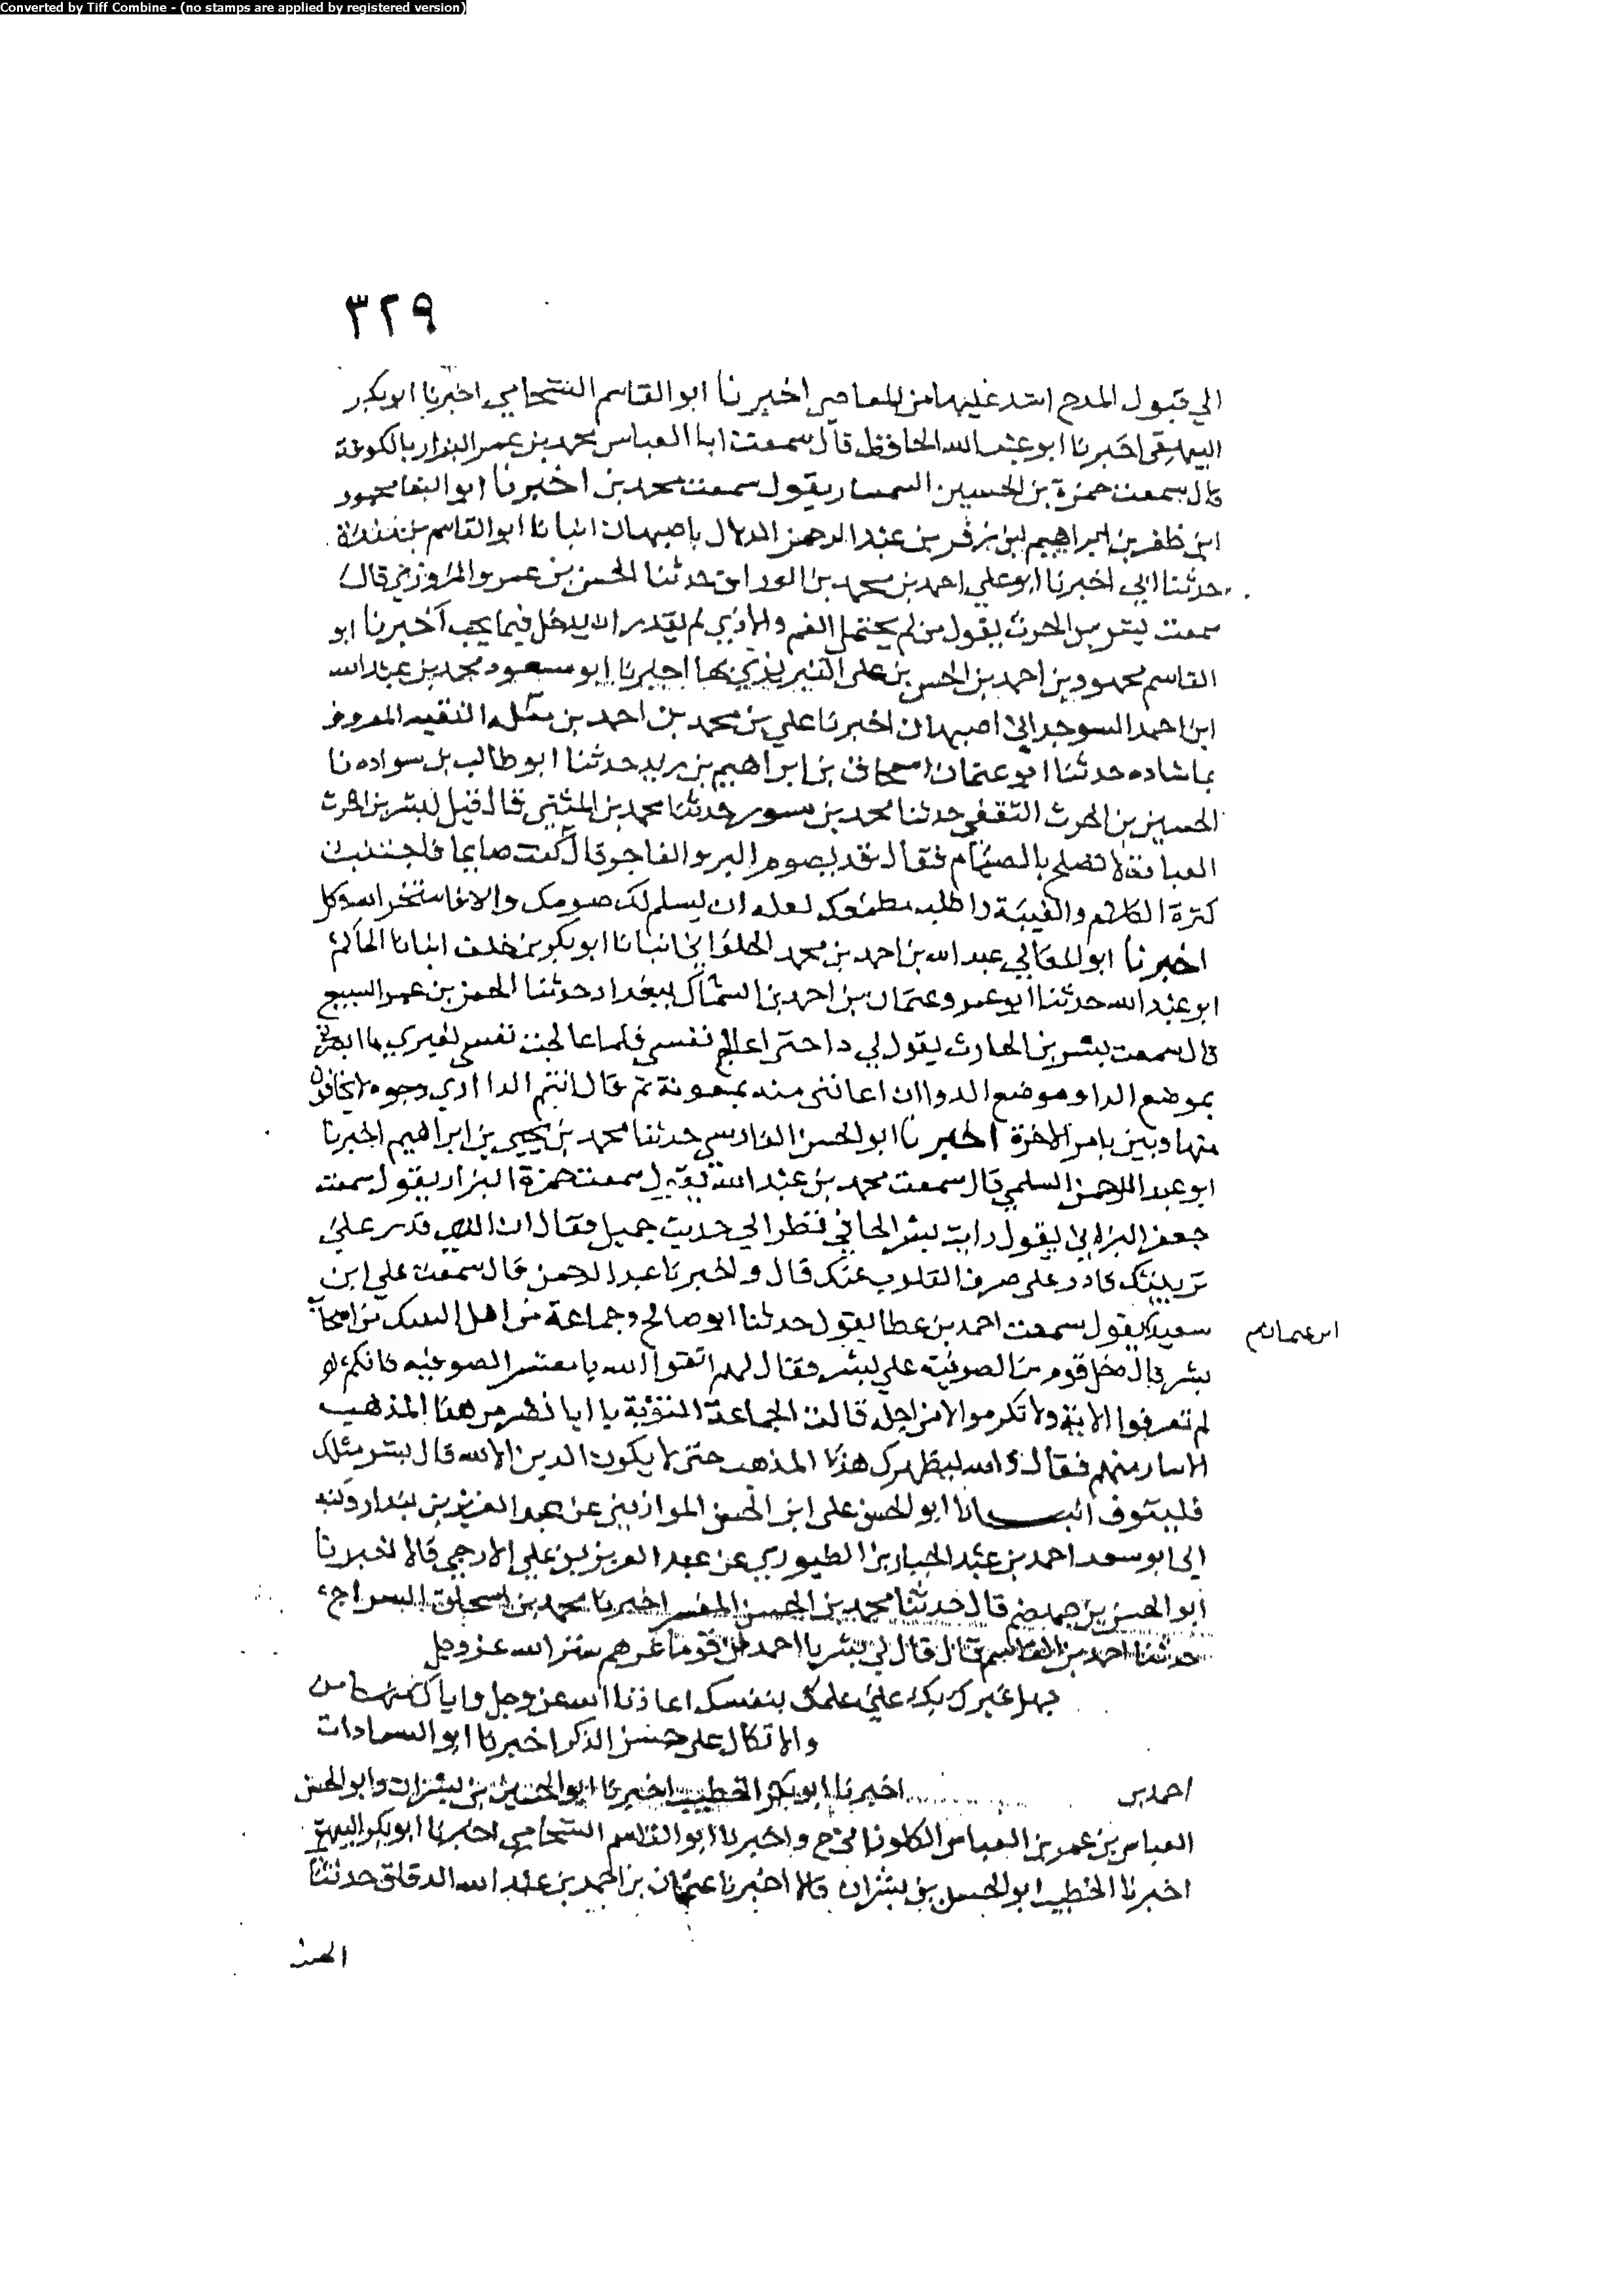 Converted by Tiff Combine - (no stamps are applied by registered version)
٣٢٩
الي قبول المدح اشد عليها من المعاصي اخبرنا ابو القاسم الشحامي اخبرنا ابو بكر
البيهقي اخبرنا ابو عبد الله الحافظ قال سمعت ابا العباس محمد بن عمر البزار بالكوفة
قال سمعت حمزة بن الحسين السمسار يقول سمعت محمد بن اخبرنا ابو البقا محمود
ابن ظفر بن ابراهيم بن عبد الرحمن الدلال باصبهان انبانا ابو القاسم بن مندة
حدثنا ابي اخبرنا ابو علي احمد بن محمد بن الوراق حدثنا الحسن بن عمرو المروزي قال
سمعت بشر بن الحرث يقول من لم يحتمل الغم والاذي لم يقدر ان يدخل فيما يحب اخبرنا ابو
القاسم محمود بن احمد بن الحسن بن علي التبريزي بها اخبرنا ابو مسعود محمد بن عبد الله
ابن احمد السوجرابي اصبهان اخبرنا علي بن محمد بن احمد بن الفقيه المعروف
بماشاده حدثنا ابو عثمان اسحاق بن ابراهيم بن يزيد حدثنا ابو طالب بن سواده نا
الحسين بن الحرث الثقفي حدثنا محمد بن حدثنا محمد بن المثني قال قيل لبشر بن الحرث
العبادة لا تصلح بالصيام فقال قد يصوم البر والفاجر قال كنت صايما فاجتنب
كثرة الكلام والغيبة واطلب مطعمك لعله ان يسلم لك صومك والا فاستخر الله وكل
اخبرنا ابو المعالي عبد الله بن احمد بن محمد الحلواني انبانا ابو بكر بن خلف انبانا الحاكم
ابو عبد الله حدثنا ابو عمرو عثمان بن احمد بن السماك ببغداد حدثنا الحسن بن عمر السبيعي
قال سمعت بشر بن الحارث يقول بي دا حتي اعالج نفسي فلما عالجت نفسي لغيري ما ابصرني
بموضع الدا وموضع الدوا ان اعانني منه بمعونة ثم قال انتم الدا اري وجوه لا يخافون
متهاونين بامر الاخرة اخبرنا ابو الحسن الفارسي حدثنا محمد بن يحيي بن ابراهيم اخبرنا
ابو عبد الرحمن السلمي قال سمعت محمد بن عبد الله يقول سمعت حمزة البزار يقول سمعت
جعفر البرداني يقول رايت بشر الحافي فنظر الي حديث جميل فقال ان الذي قدر علي
تزيينك قادر علي صرف القلوب عنك قال واخبرنا عبد الرحمن قال سمعت علي ابن
سعيد يقول سمعت احمد بن عطا يقول حدثنا ابو صالح وجماعة من اهل النسك من اصحاب
ابن عثمان
بشر قال دخل قوم من الصوفية علي بشر فقال لهم اتقوا الله يا معشر الصوفيه فانكم لو
لم تعرفوا الا به ولا تكرموا الا من اجله قالت الجماعة المتقربة يا ابا نصر من هذا المذهب
الا سار منهم فقال والله ليظهرن هذا المذهب حتي لا يكون الدين الا لله قال بشر مثلك
فليتوف انبانا ابو الحسن علي ابن الحسن الموازيني عن عبد العزيز بن بندار وكتب
الي ابو سعد احمد بن عبد الجبار بن الطيوري عن عبد العزيز بن علي الازجي قالا اخبرنا
ابو الحسن بن جهضم قال حدثنا محمد بن الحسن المفسر اخبرنا محمد بن اسحاق السراج
حدثنا احمد بن القاسم قال قال لي بشر يا احمد ان قوما غرهم ستر الله عز وجل
جهل غيرك بك علي علمك بنفسك اعاذنا الله عز وجل واياك من
والاتكال علي حسن الذكر اخبرنا ابو السعادات
احمد بن اخبرنا ابو بكر الخطيب اخبرنا ابو الحسين بن بشران وابو الحسن
العباس بن عمر بن العباس الكلوذاني ح واخبرنا ابو القاسم الشحامي اخبرنا ابو بكر البيهقي
اخبرنا الخطيب ابو الحسين بن بشران قالا اخبرنا عثمان بن احمد بن عبد الله الدقاق حدثنا
الحسن